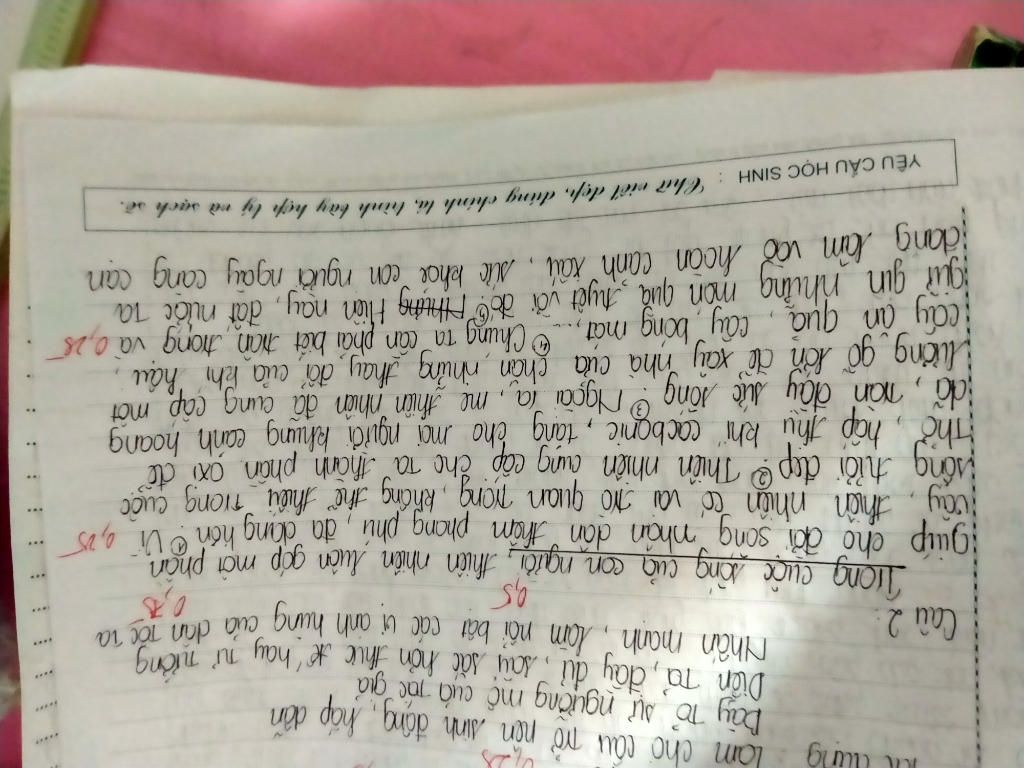 0,25
dụng : Làm cho câu trở nên sinh động, hấp dẫn
Bày tỏ sự ngưỡng mộ của tác giả
Diễn tả, đầy đủ, sâu sắc hơn thực tế hay tư tưởng
Nhấn mạnh, làm nổi bật các vị anh hùng của dân tộc ta
Câu 2: 0,5
Trong cuộc sống của con người, thiên nhiên luôn góp một phần
giúp cho đời sống nhân dân thêm phong phú, đa dạng hơn. ① Vì 0,25
vậy, thiên nhiên có vai trò quan trọng, không thể thiếu trong cuộc
sống tươi đẹp. ② Thiên nhiên cung cấp cho ta thành phần oxi để
thở, hấp thụ khí cacbonic, tặng cho mọi người khung cảnh hoang
dã, tràn đầy sức sống. ③ Ngoài ra, mẹ thiên nhiên đã cung cấp một
lượng gỗ lớn để xây nhà cửa chặn những thay đổi của khí hậu,
cây ăn quả, cây bóng mát,... ④ Chúng ta cần phải biết trân trọng và 0,25
giữ gìn những món quà tuyệt vời đó. ⑤ Hiện nay, đất nước ta
đang lâm vào hoàn cảnh xấu, sức khỏe con người ngày càng cạn
YÊU CẦU HỌC SINH : Chữ viết đẹp, đúng chính tả, trình bày hợp lý và sạch sẽ.